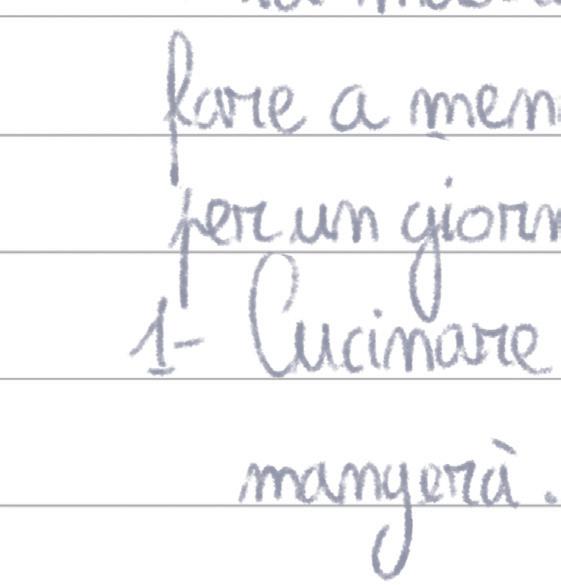 fare a men
per un giorn
1- Cucinare
mangerà.